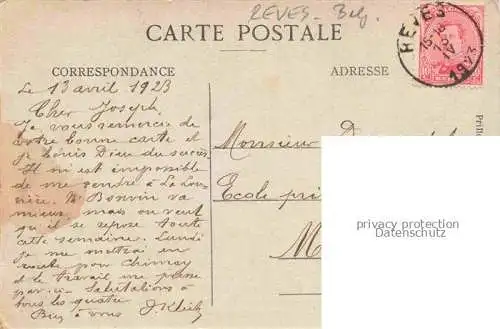 REVES - Belg.
CARTE POSTALE
REVES
1923
CORRESPONDANCE
ADRESSE
Le 13 avril 1923
Cher Joseph,
Je vous remercie de
votre bonne carte et
je bénis Dieu du succès.
Il m'est impossible
de me rendre à La Lou-
vière. Mr Bonvin va
mieux, mais on veut
qu'il se repose toute
cette semaine. Lundi
je me mettrai en
route pour Chimay
et le travail me presse
par-ici - Salutations à
tous les quatre
Bien à vous
Monsieur D
Ecole pri
M
privacy protection
Datenschutz